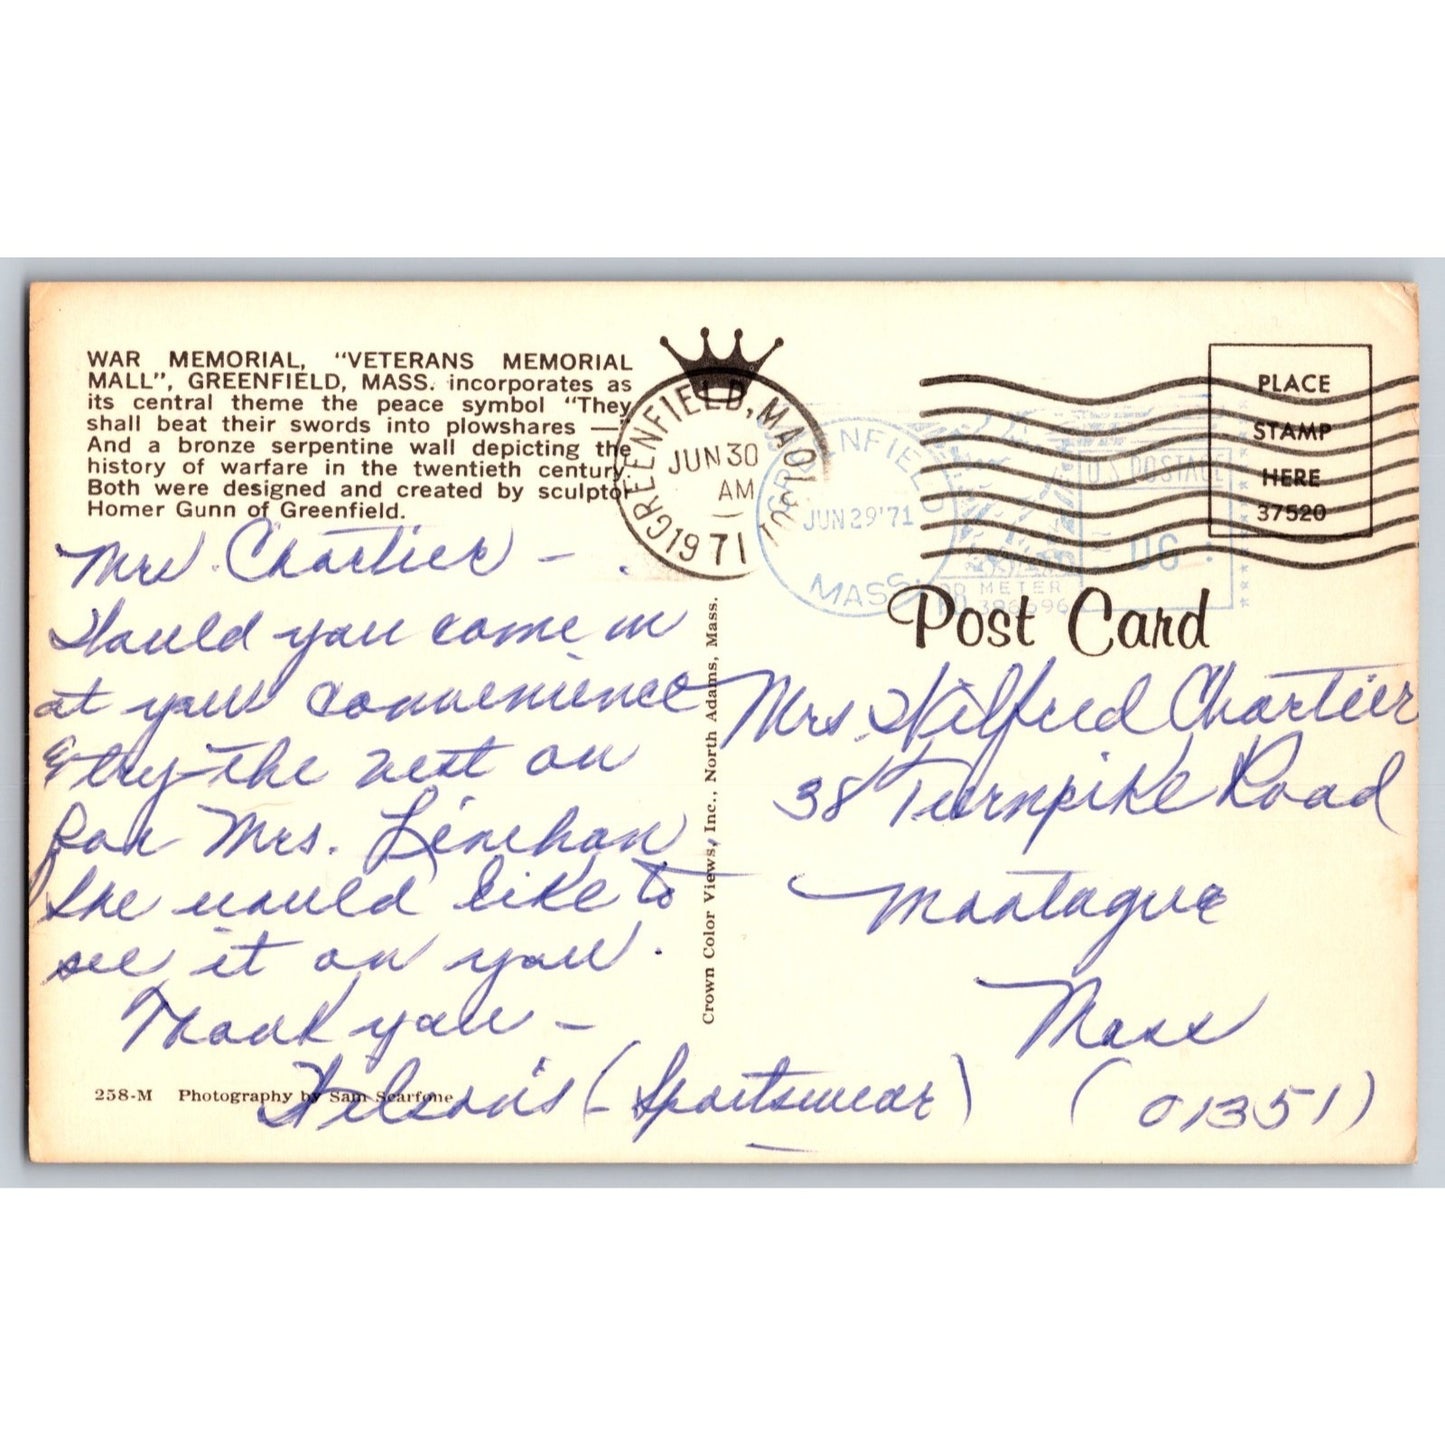 WAR MEMORIAL, "VETERANS MEMORIAL
MALL", GREENFIELD, MASS. incorporates as
its central theme the peace symbol "They
shall beat their swords into plowshares —"
And a bronze serpentine wall depicting the
history of warfare in the twentieth century.
Both were designed and created by sculptor
Homer Gunn of Greenfield.
GREENFIELD, MA 01301
JUN 30
AM
1971
GREENFIELD
JUN 29 '71
MASS
U.S. POSTAGE
06
METER
PLACE
STAMP
HERE
37520
Post Card
Mrs. Chartier –
Would you come in
at your convenience
& try the rest on
for Mrs. Linehan
She would like to
see it on you.
Thank you –
Wilson's (Sportswear)
Mrs. Wilfred Chartier
38 Turnpike Road
Montague
Mass
(01351)
Crown Color Views, Inc., North Adams, Mass.
258-M Photography by Sam Scarfone